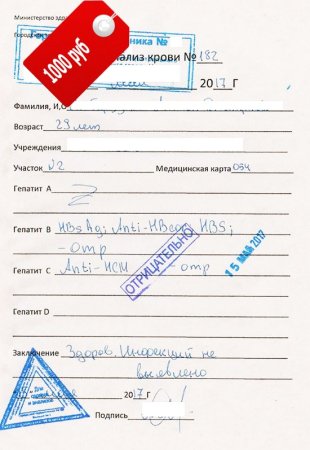 Министерство здра
Городск
1000 руб
ника №
ализ крови № 182
мая 2017 Г
Фамилия, И,О
Возраст 29 лет
Учреждения
Участок №2 Медицинская карта 054
Гепатит А
Гепатит В HBsAg; Anti-HBcor, HBS;
- отр
Гепатит С Anti-HCM - отр
ОТРИЦАТЕЛЬНО
15 МАЙ 2017
Гепатит D
Заключение Здоров. Инфекций не
выявлено
2017 Г
Для справок и анализов
Подпись